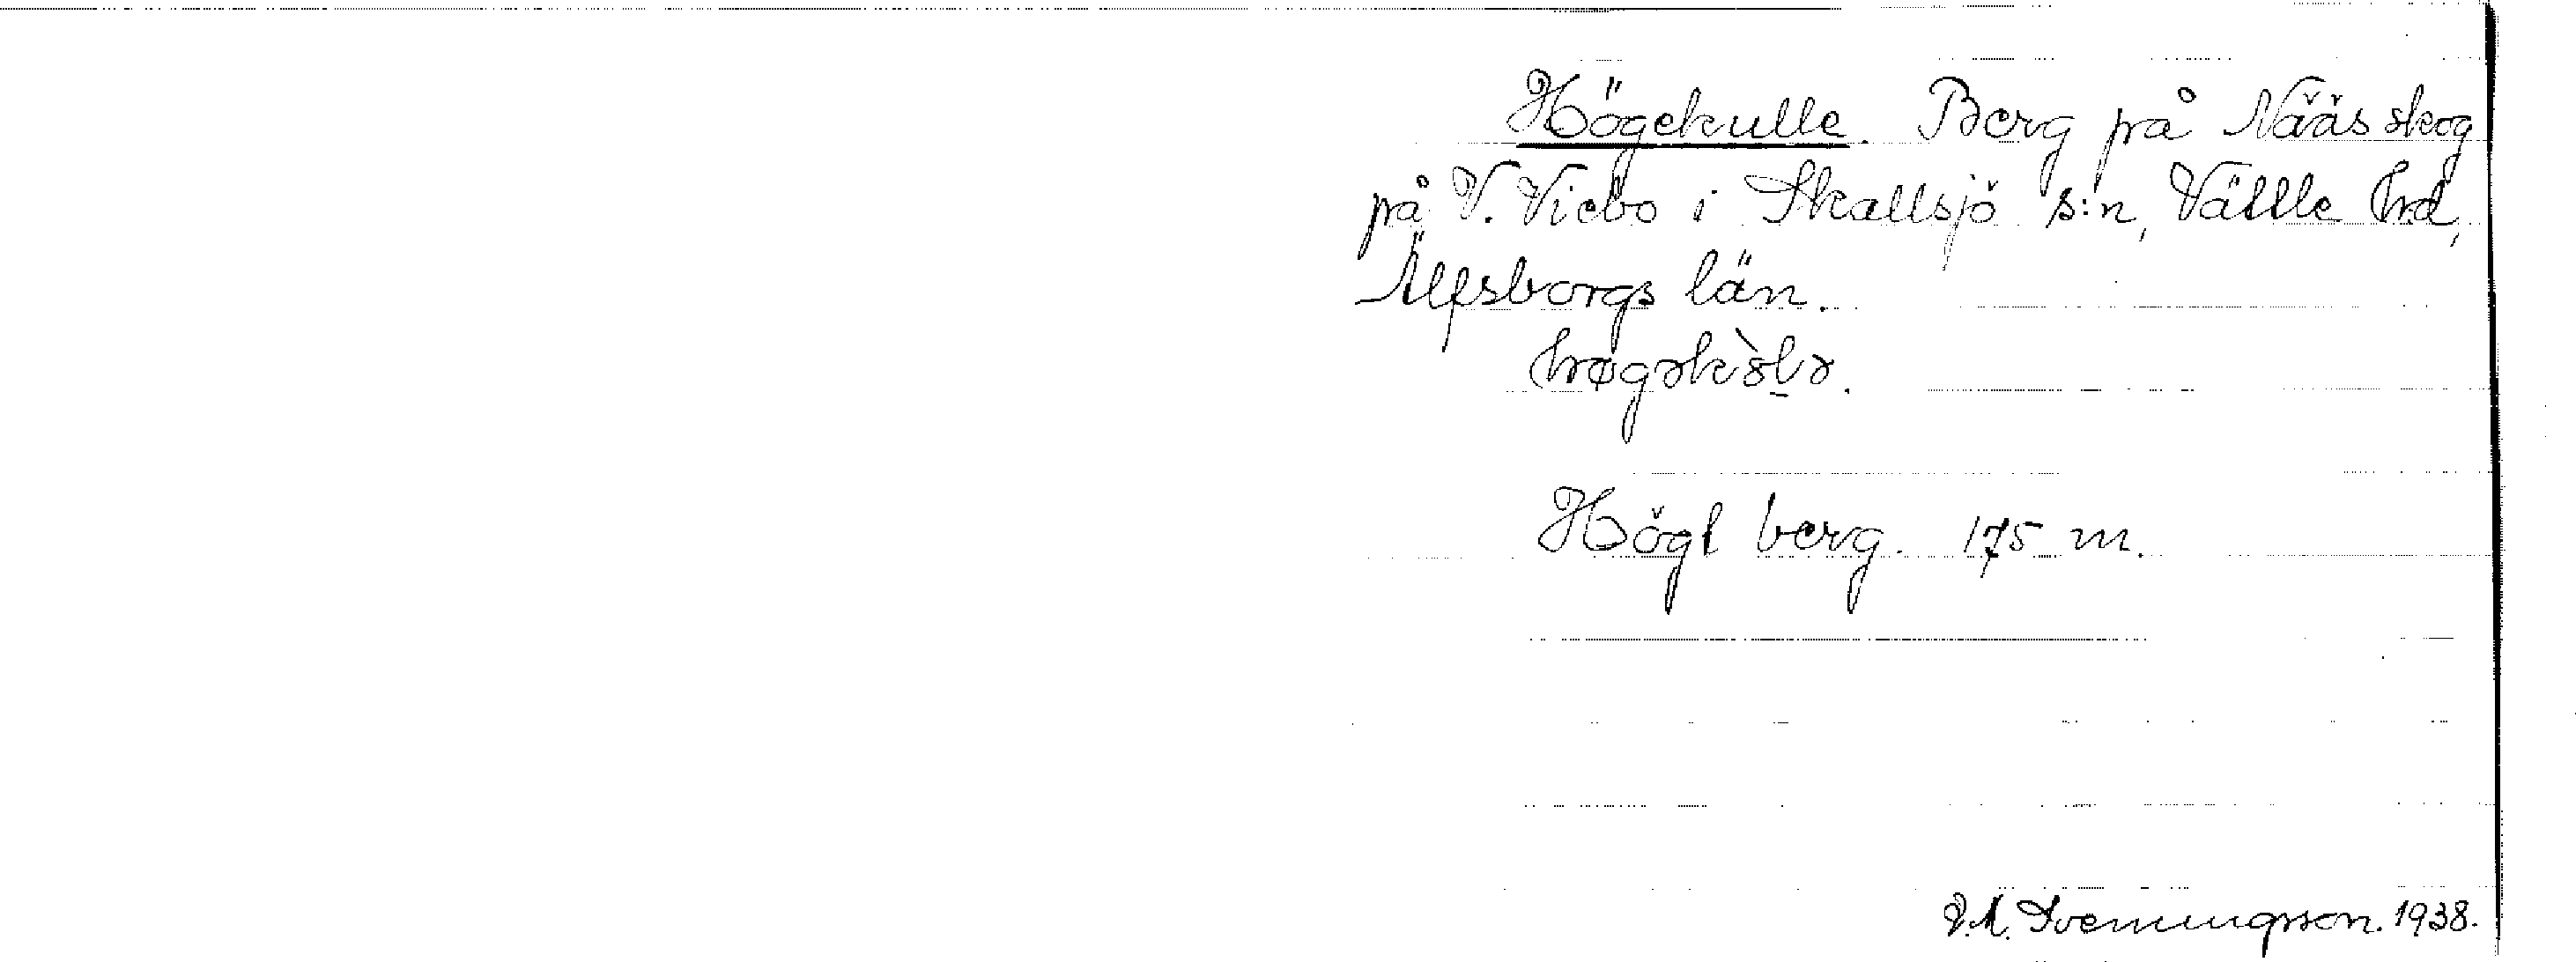 Högekulle. Berg på Nääs skog
på V. Viebo i Skallsjö s:n, Vättle hrd,
Älfsborgs län.
Högt berg. 175 m.
Svenningsson. 1938.